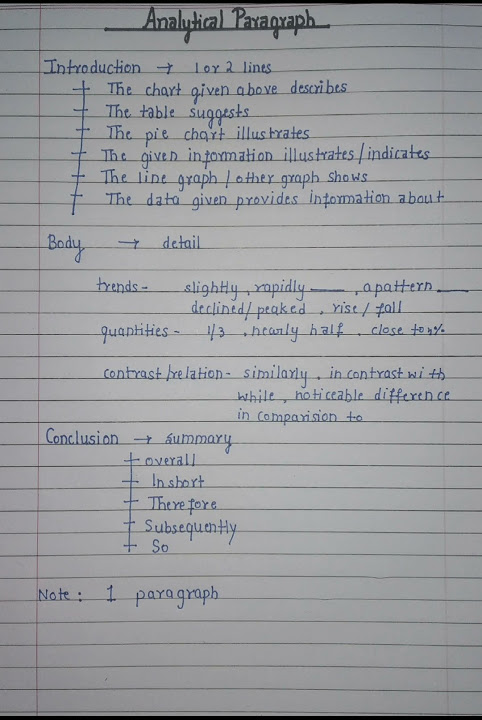 Analytical Paragraph
Introduction → 1 or 2 lines
The chart given above describes
The table suggests
The pie chart illustrates
The given information illustrates/indicates
The line graph / other graph shows
The data given provides information about
Body → detail
trends - slightly, rapidly ____, a pattern ____
declined/peaked, rise / fall
quantities - 1/3, nearly half, close to %
contrast/relation - similarly, in contrast with
while, noticeable difference
in comparision to
Conclusion → summary
overall
In short
Therefore
Subsequently
So
Note: 1 paragraph